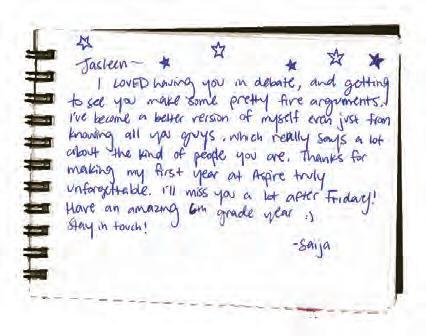 Jasleen —
I LOVED having you in debate, and getting
to see you make some pretty fire arguments.
I've become a better version of myself even just from
knowing all you guys, which really says a lot
about the kind of people you are. Thanks for
making my first year at Aspire truly
unforgettable. I'll miss you a lot after Friday!
Have an amazing 6th grade year :)
Stay in touch!
-Saija